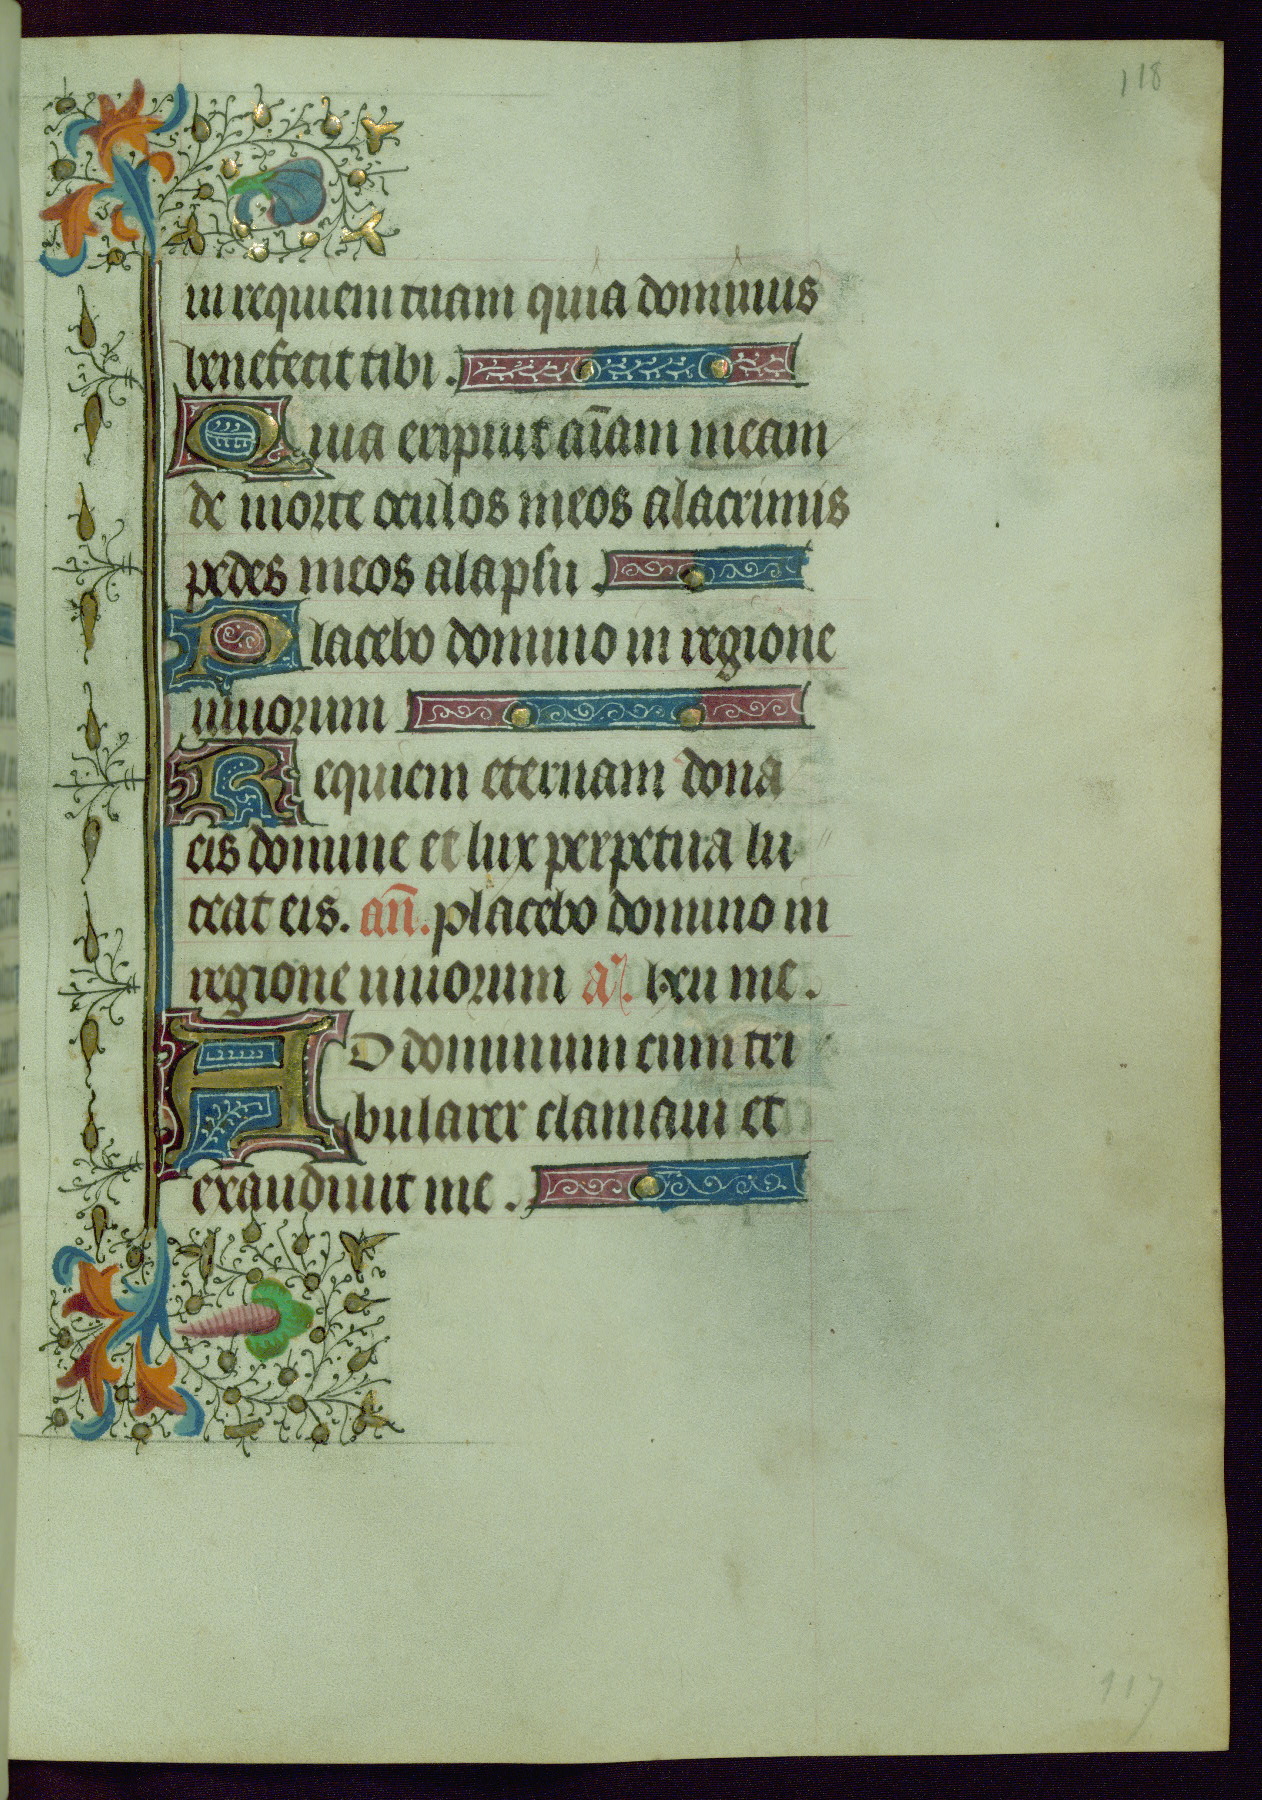 118
in requiem tuam quia dominus
benefecit tibi.
Quia eripuit aīam meam
de morte oculos meos alacrimis
pedes meos alapsu.
Placebo domino in regione
uiuorum
Requiem eternam dona
eis domine et lux perpetua lu
ceat eis. an̄. placebo domino in
regione uiuorum a. me.
AD dominum cum tri
bularer clamaui et
exaudiuit me.
117